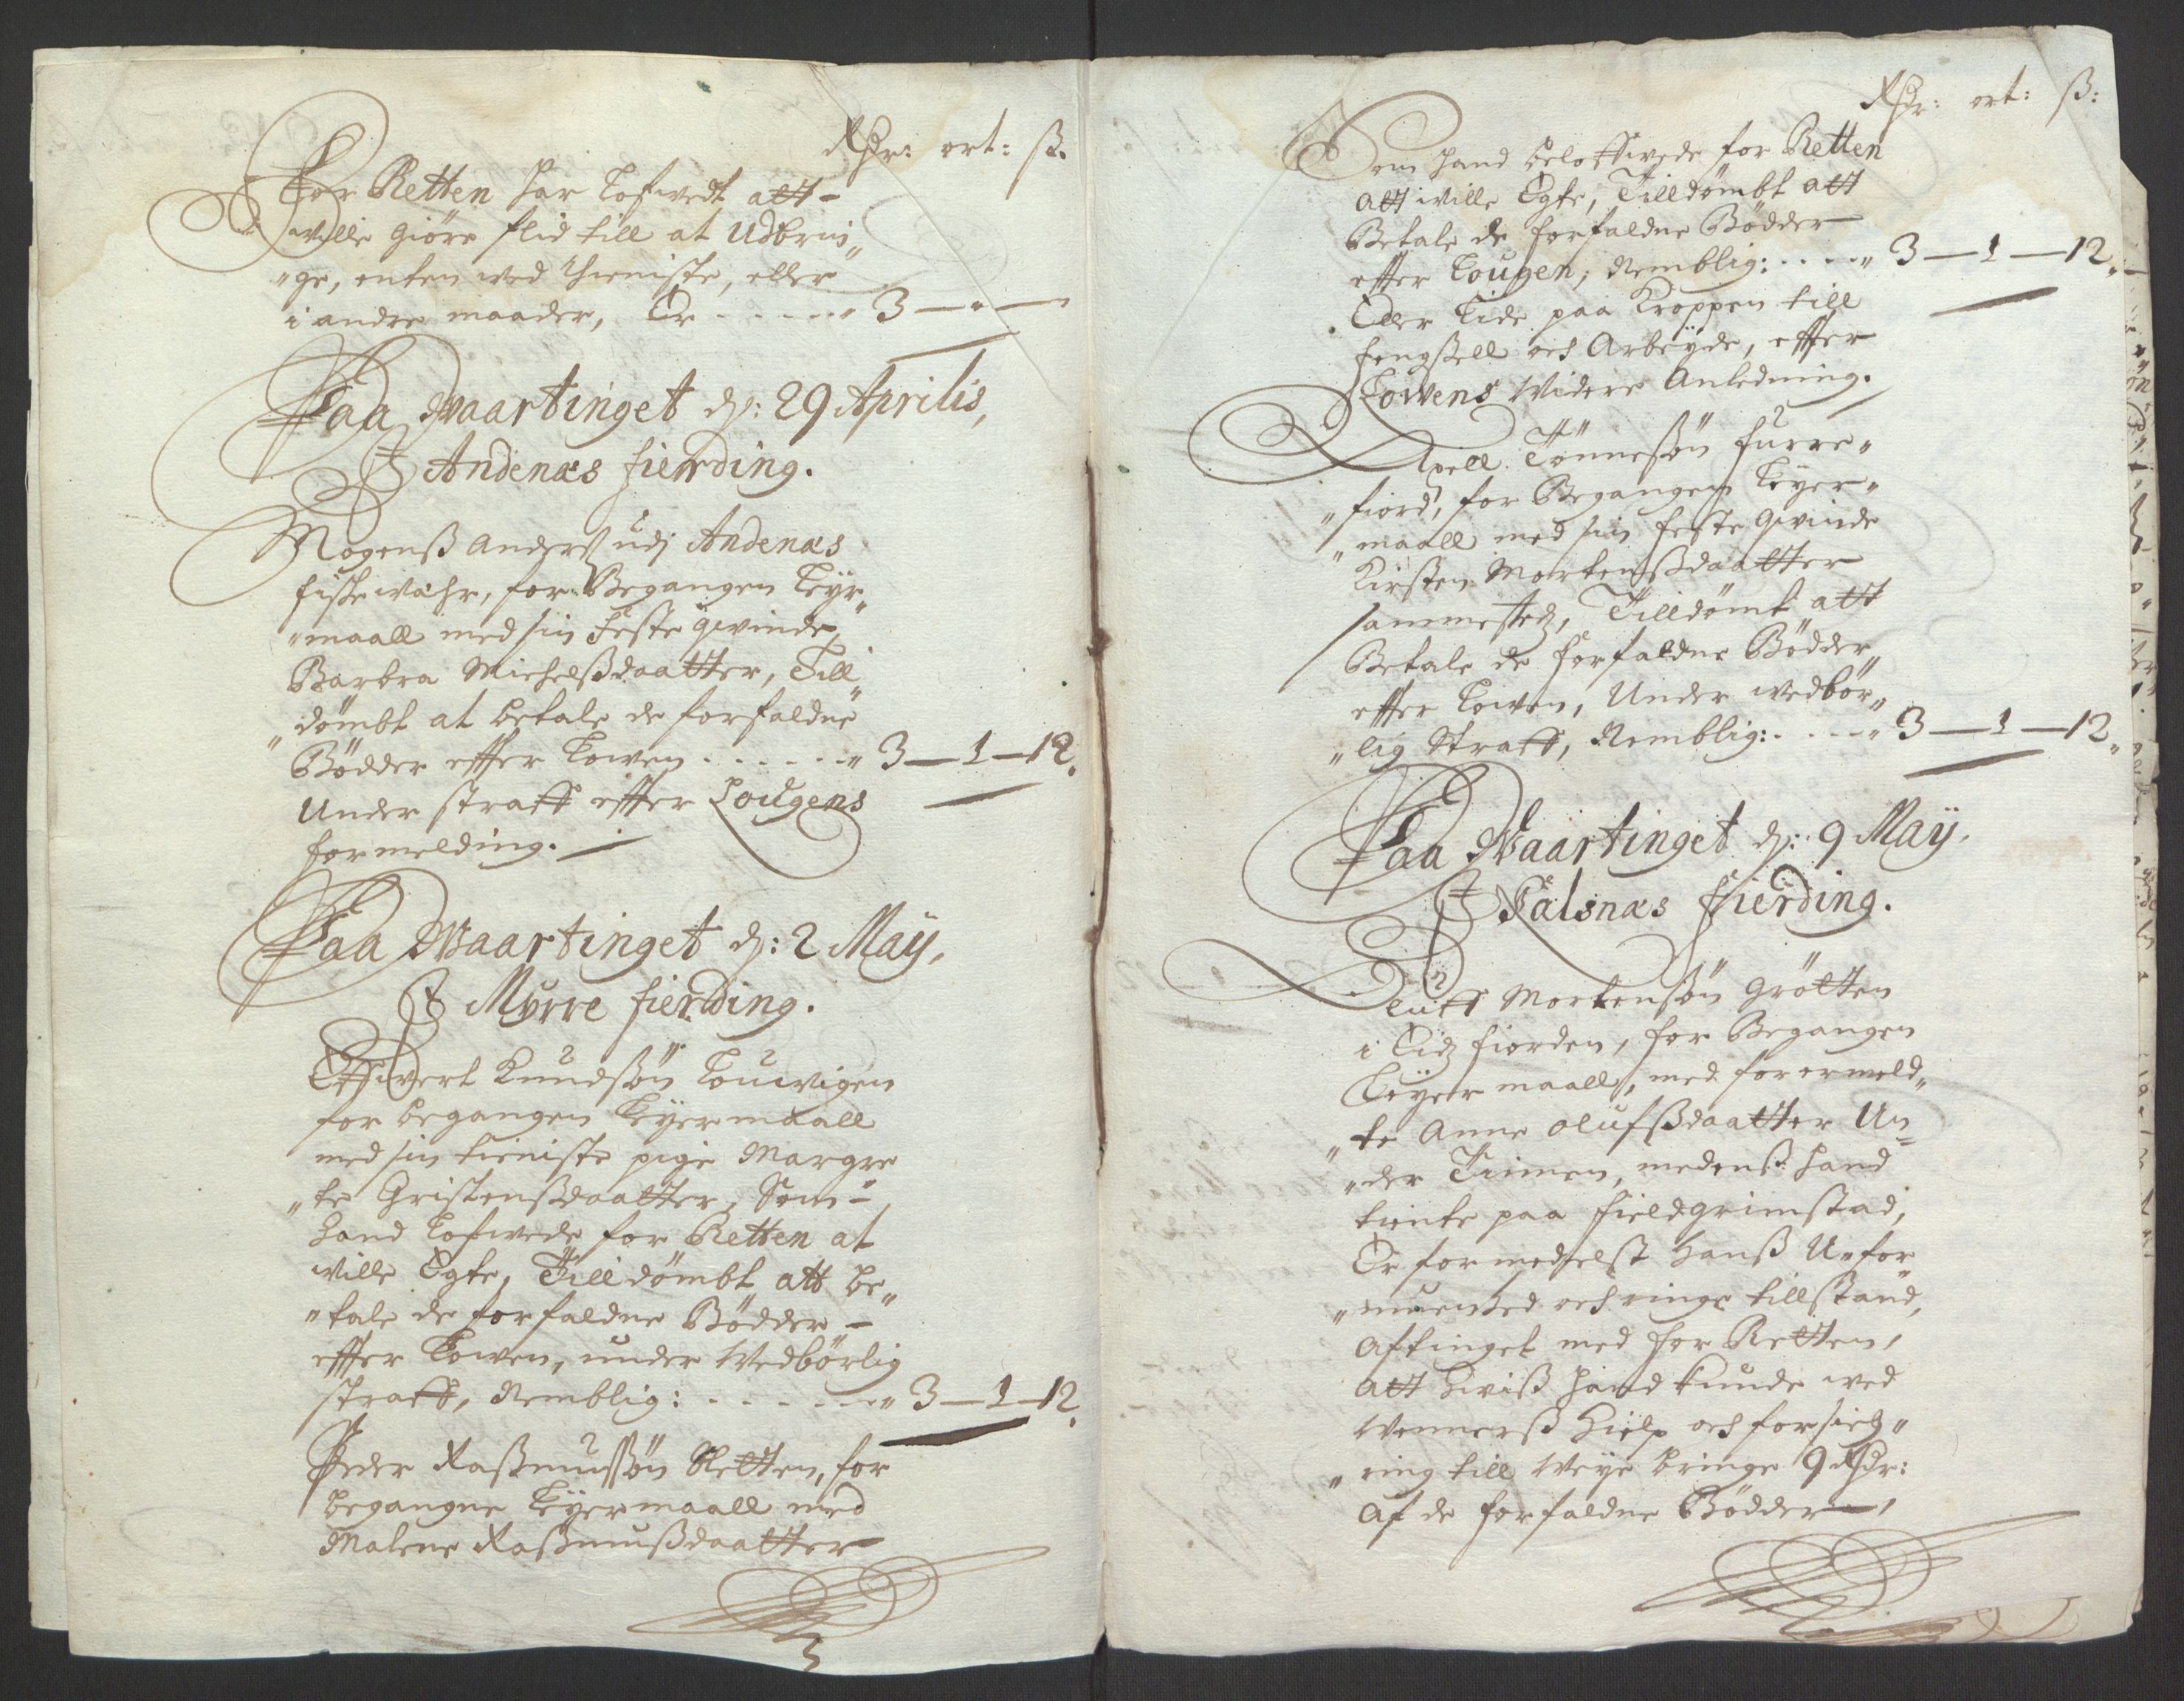 Rdr: ort: ß.
For Retten har Lofwedt att-
wille giöre flid till at Udbrin„
„ge, enten wed thieniste, eller
i andre maader, Er - - - - „ 3 — „ —
Paa Waartinget dj: 29 Aprilis,
I Andenæs fierding.
Mogenß Anderß udj Andenæs
fiskewæhr, for Begangen Leyr„
„maall med sin Feste qwinde,
Barbra Michelßdaatter, Till„
„dömbt at betale de forfaldne
Bödder effter Lowen - - - - - „ 3 — 1 — 12.
Under straff effter Lougens
formelding.
Paa Waartinget dj: 2 Maij,
I Myrre fierding.
Knudsön
for begangen Leyermaall
med sin tieniste pige Margre
„te Christenßdaatter, Som-
hand Lofwede for Retten at
wille Egte, Tilldömbt att be„
„tale de forfaldne Bödder -
effter Lowen, under Wedbörlig
straff, Nemblig: - - - - - „ 3 — 1 — 12.
Peder Raßmußön Sletten, for
begangne Leyermaall med
Malene Raßmußdaatter
Rdr: ort: ß:
Som hand beloffwede for Retten
att wille Egte, Tilldömbt att
Betale de forfaldne Bödder
effter Lougen, Nemblig: - - - „ 3 — 1 — 12.
Eller Lide paa Kroppen till
fengßell och Arbeyde, effter
Lowens Widere Anledning.
Axell Tönneßön Furre„
„fiord, for Begangen Leyer„
„maall med sin Feste Qwinde
Kirsten Mortenßdaatter
sammested, Tilldömt att
Betale de forfaldne Bödder
effter Lowen, Under wedbör„
„lig Straff, Nemblig: - - - „ 3 — 1 — 12„
Paa Waartinget dj: 9 Maij,
I Falsnæs fierding.
Oluff Mortensön Grötten
i Eidz fiorden, for Begangen
Leyer maall, med forermeld„
„te Anne Olufßdaatter Un„
„der Tiimen, medenß hand
tiente paa Fieldgrimstad,
Er formedelst Hanß U-for„
„muenhed och ringe tillstand,
Aftinget med for Retten,
att hwiß hand kunde wed
Wennerß hielp och
„ring till Weye bringe 9 Rdr:
Af de forfaldne Bödder,